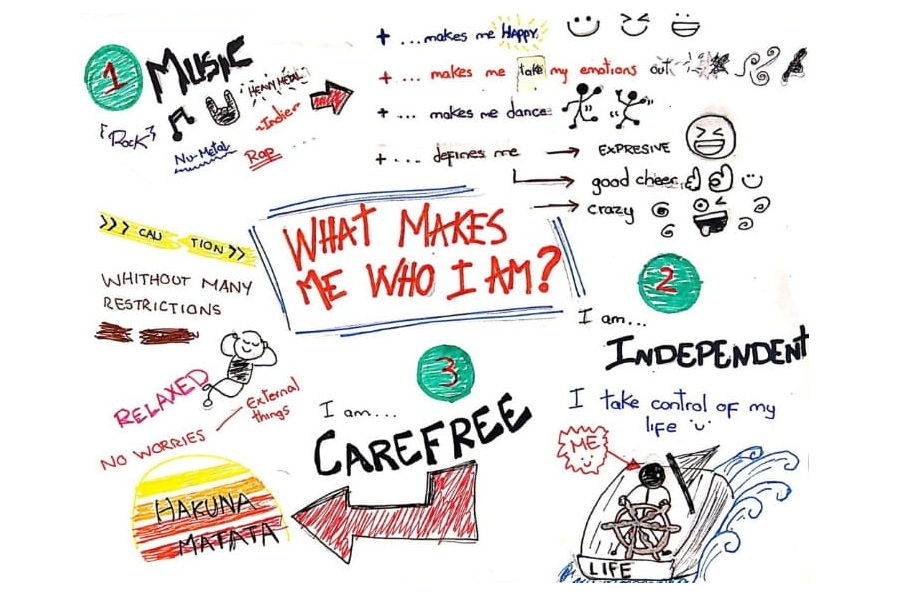 WHAT MAKES
ME WHO I AM?
1
MUSIC
HEAVY METAL
"Rock"
Indie
Nu-Metal
Rap ...
+ ...makes me HAPPY
+ ... makes me take my emotions out
+ ... makes me dance
+ .... defines me → EXPRESIVE
good cheer
crazy
2
I am...
INDEPENDENT
I take control of my
life
ME
LIFE
3
I am...
CAREFREE
>>> CAU TION >>
WHITHOUT MANY
RESTRICTIONS
RELAXED
NO WORRIES
External
things
HAKUNA
MATATA